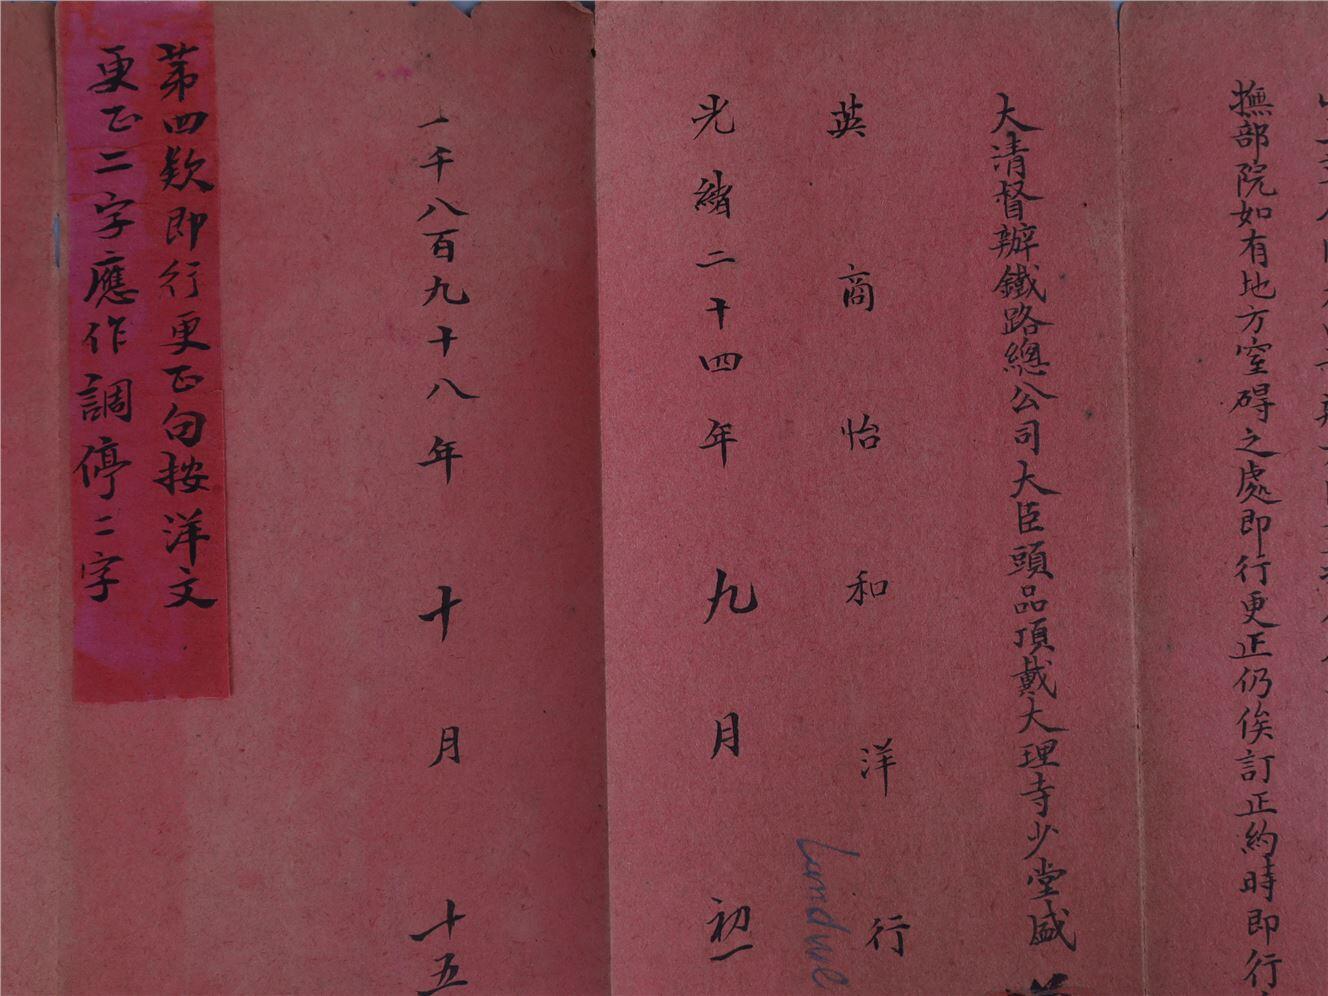 撫部院如有地方窒碍之處即行更正仍俟訂正約時即行
大清督辦鐵路總公司大臣頭品頂戴大理寺少堂盛
英商怡和洋行
光緒二十四年九月初一
一千八百九十八年十月十五
第四欵即行更正句按洋文
更正二字應作調停二字